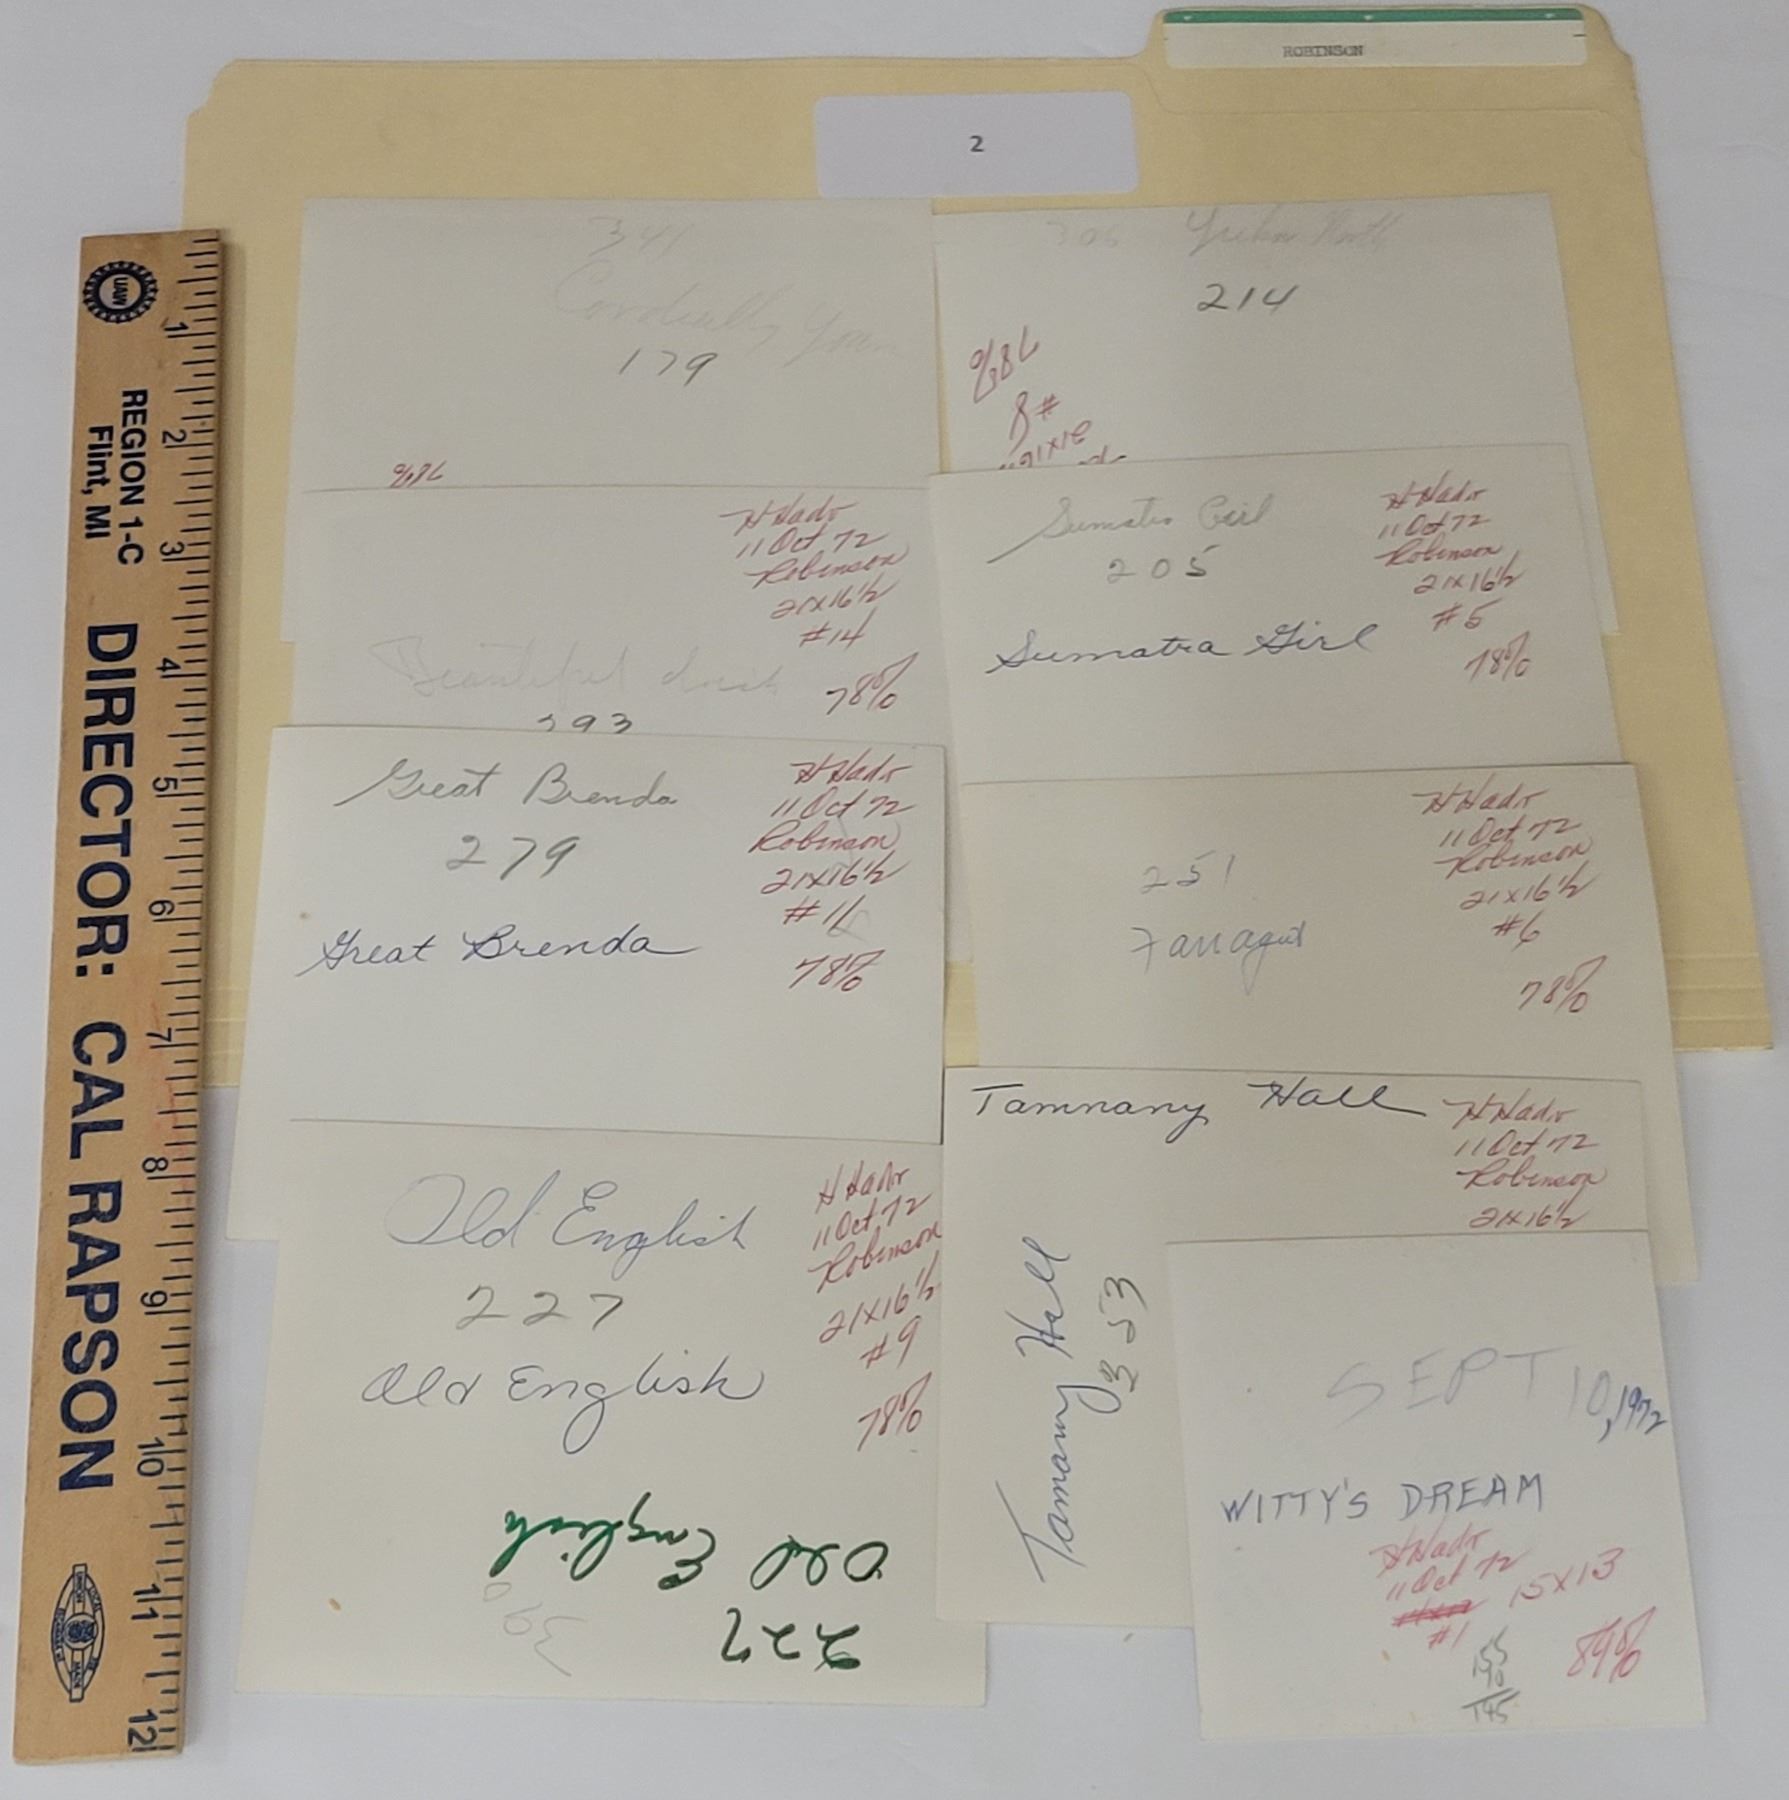 ROBINSON
2
341
Cordially Yours
179
78%
306
214
78%
8#
21x16½
H Hadr
11 Oct 72
Robinson
21x16½
#14
78%
Beautiful
293
Sumatra Girl
205
Sumatra Girl
H Hadr
11 Oct 72
Robinson
21x16½
#5
78%
Great Brenda
279
Great Brenda
H Hadr
11 Oct 72
Robinson
21x16½
#11
78%
251
Farragut
H Hadr
11 Oct 72
Robinson
21x16½
#6
78%
Old English
227
Old English
H Hadr
11 Oct 72
Robinson
21x16½
#9
78%
Old English
227
390
Tammany Hall
H Hadr
11 Oct 72
Robinson
21x16½
Tamanny Hall
353
SEPT 10, 1972
WITTY'S DREAM
H Hadr
11 Oct 72
15x13
#1
84%
155
190
145
UAW
REGION 1-C
Flint, MI
DIRECTOR: CAL RAPSON
1 2 3 4 5 6 7 8 9 10 11 12